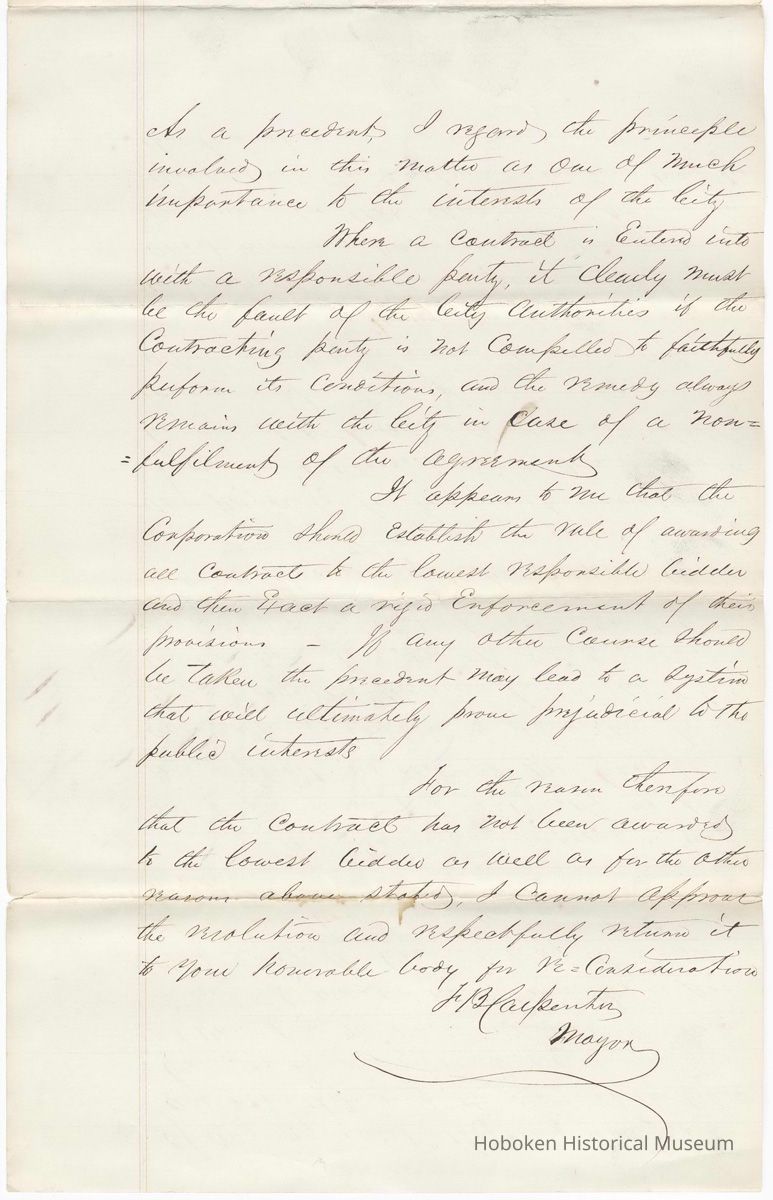 As a precedent, I regard the principle
involved in this matter as one of much
importance to the interests of the City
Where a contract is Entered into
with a responsible party, it clearly must
be the fault of the City Authorities if the
Contracting party is not Compelled to faithfully
perform its Conditions, and the remedy always
remains with the City in Case of a non=
=fulfilment of the agreement
It appears to me that the
Corporation should Establish the rule of awarding
all Contracts to the lowest responsible bidder
and then Exact a rigid Enforcement of their
provisions – If any other Course should
be taken the precedent may lead to a System
that will ultimately prove prejudicial to the
public interests
For the reason therefore
that the Contract has not been awarded
to the lowest bidder as well as for the other
reasons above stated, I Cannot approve
the resolution and respectfully return it
to your honorable body for re=Consideration
F B Carpenter
Mayor
Hoboken Historical Museum